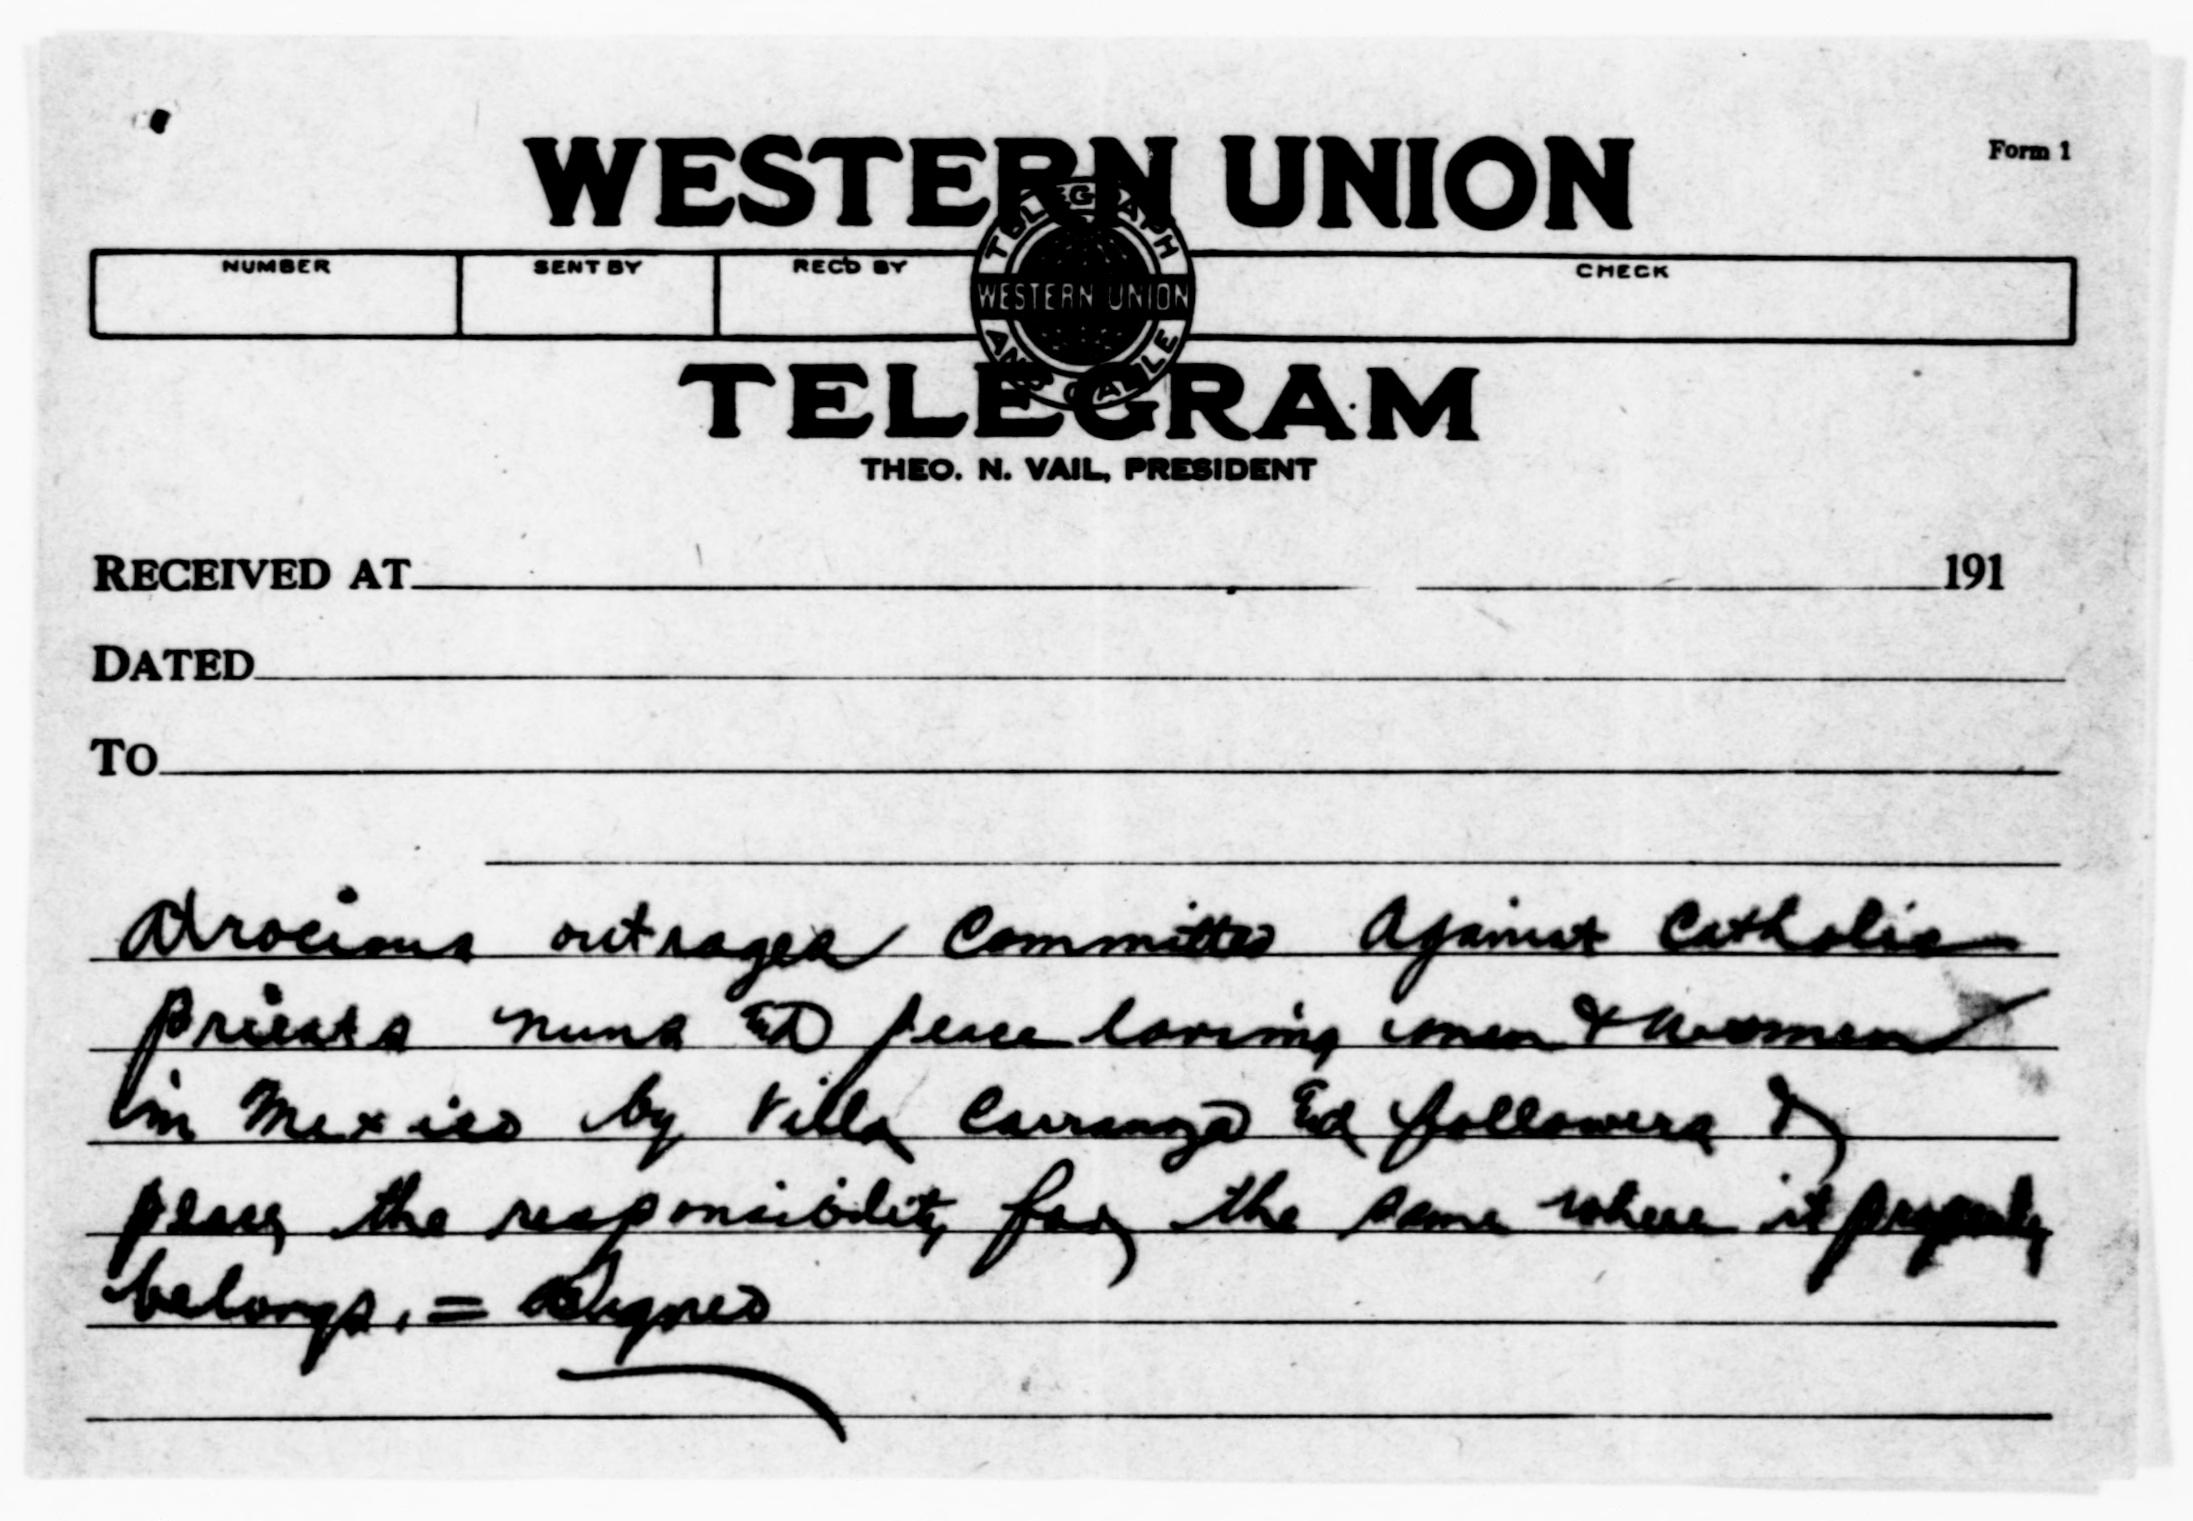 Form 1
WESTERN UNION
NUMBER SENT BY REC'D BY CHECK
TELEGRAPH AND CABLE
WESTERN UNION
TELEGRAM
THEO. N. VAIL, PRESIDENT
RECEIVED AT 191
DATED
TO
Atrocious outrages Committed Against Catholic
priests nuns and peace loving men & women
in Mexico by Villa Carranza and followers &
place the responsibility for the same where it properly
belongs. = Signed